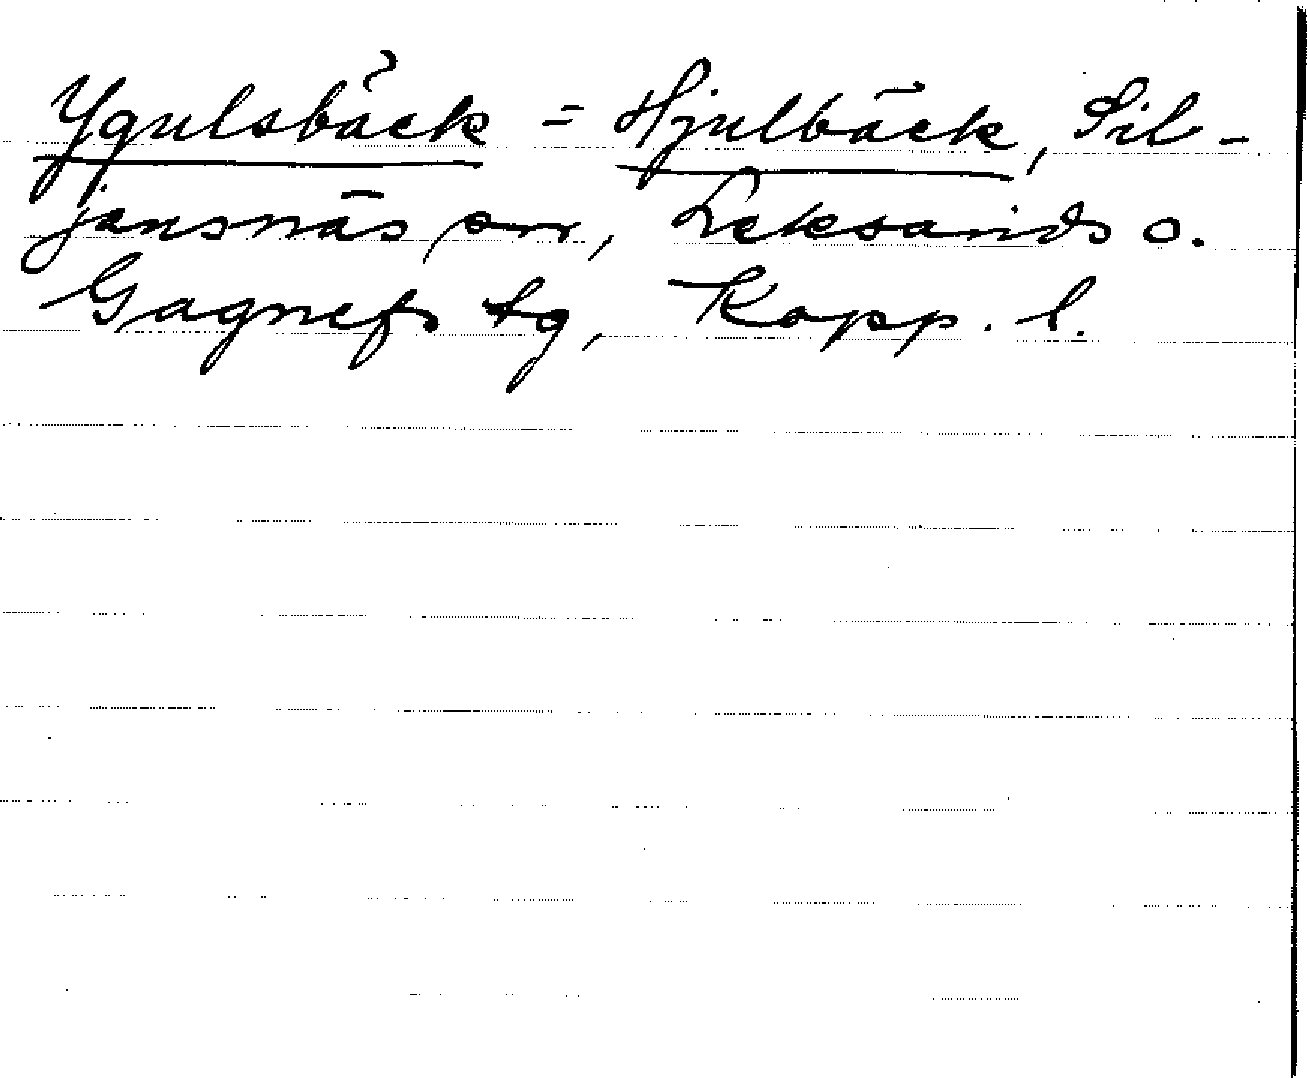 Ygulsbäck = Hjulbäck, Sil-
jansnäs sn, Leksands o.
Gagnefs tg, Kopp. l.